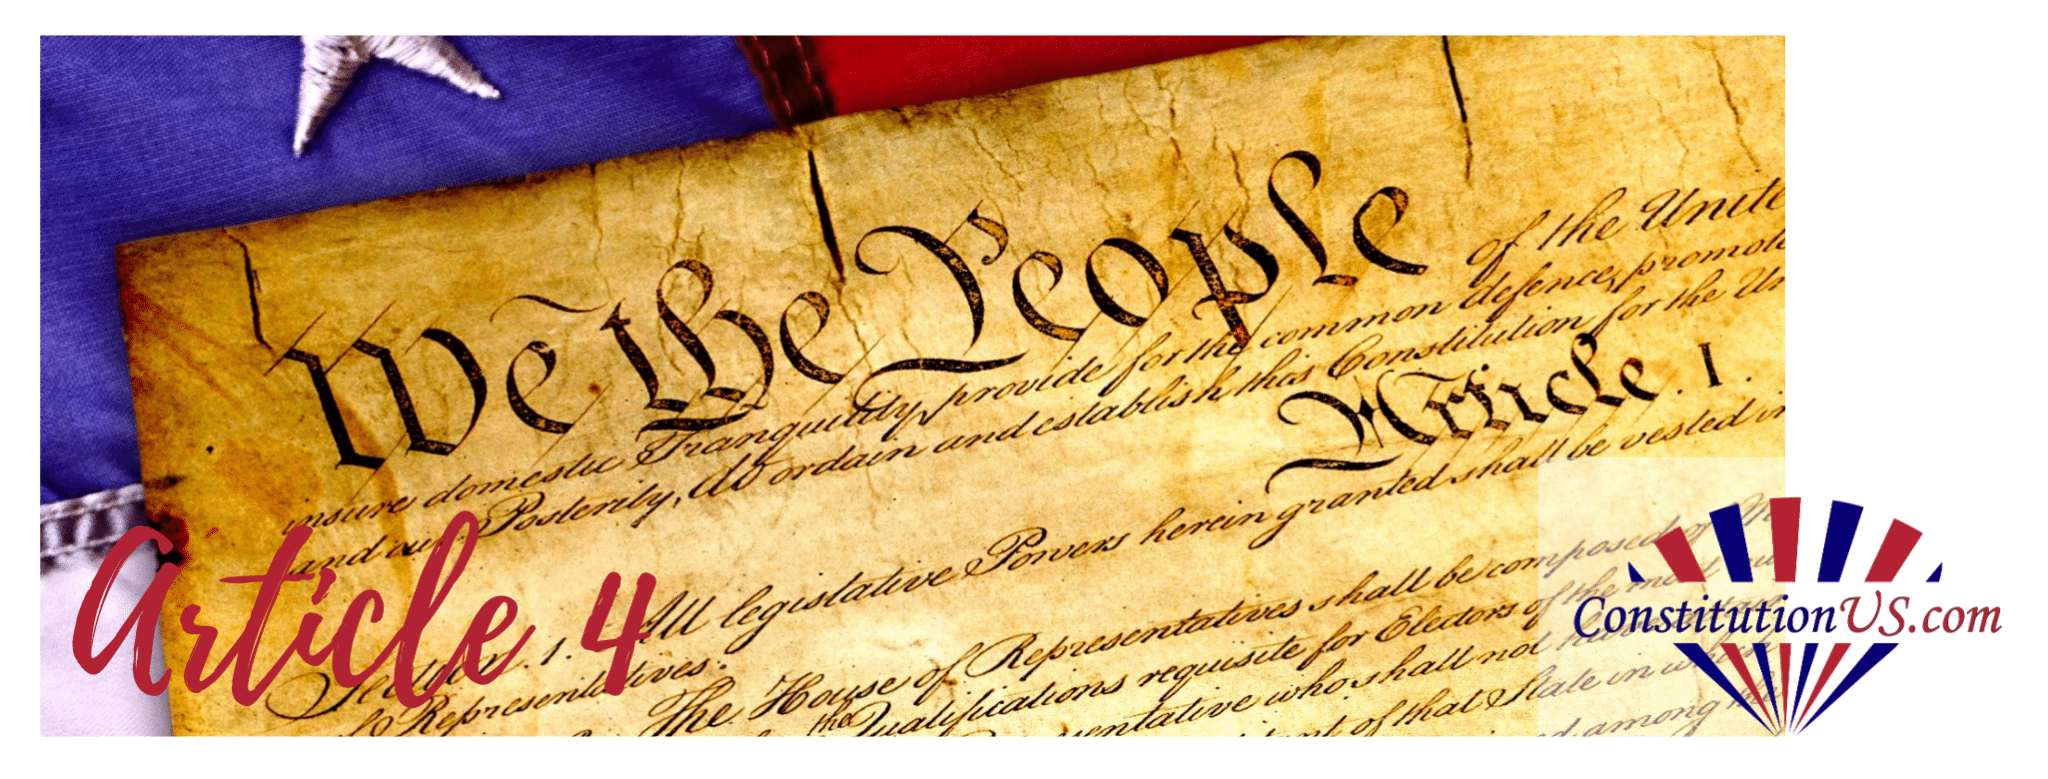 We the People
of the Unite
insure domestic Tranquility, provide for the common defence, promote
and our Posterity, do ordain and establish this Constitution for the Un
Article . I .
Section. 1. All legislative Powers herein granted shall be vested in
of Representatives.
The House of Representatives shall be composed of
the Qualifications requisite for Electors of the most
Representative who shall not
of that State in
among the
Article 4
ConstitutionUS.com